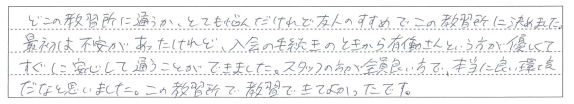 どこの教習所に通うか、とても悩んだけれど友人のすすめでこの教習所に決めました。
最初は不安があったけれど、入会の手続きのときから有働さんという方が優しくて
すぐに安心して通うことができました。スタッフの方が全員良い方で、本当に良い環境
だなと思いました。この教習所で教習できてよかったです。